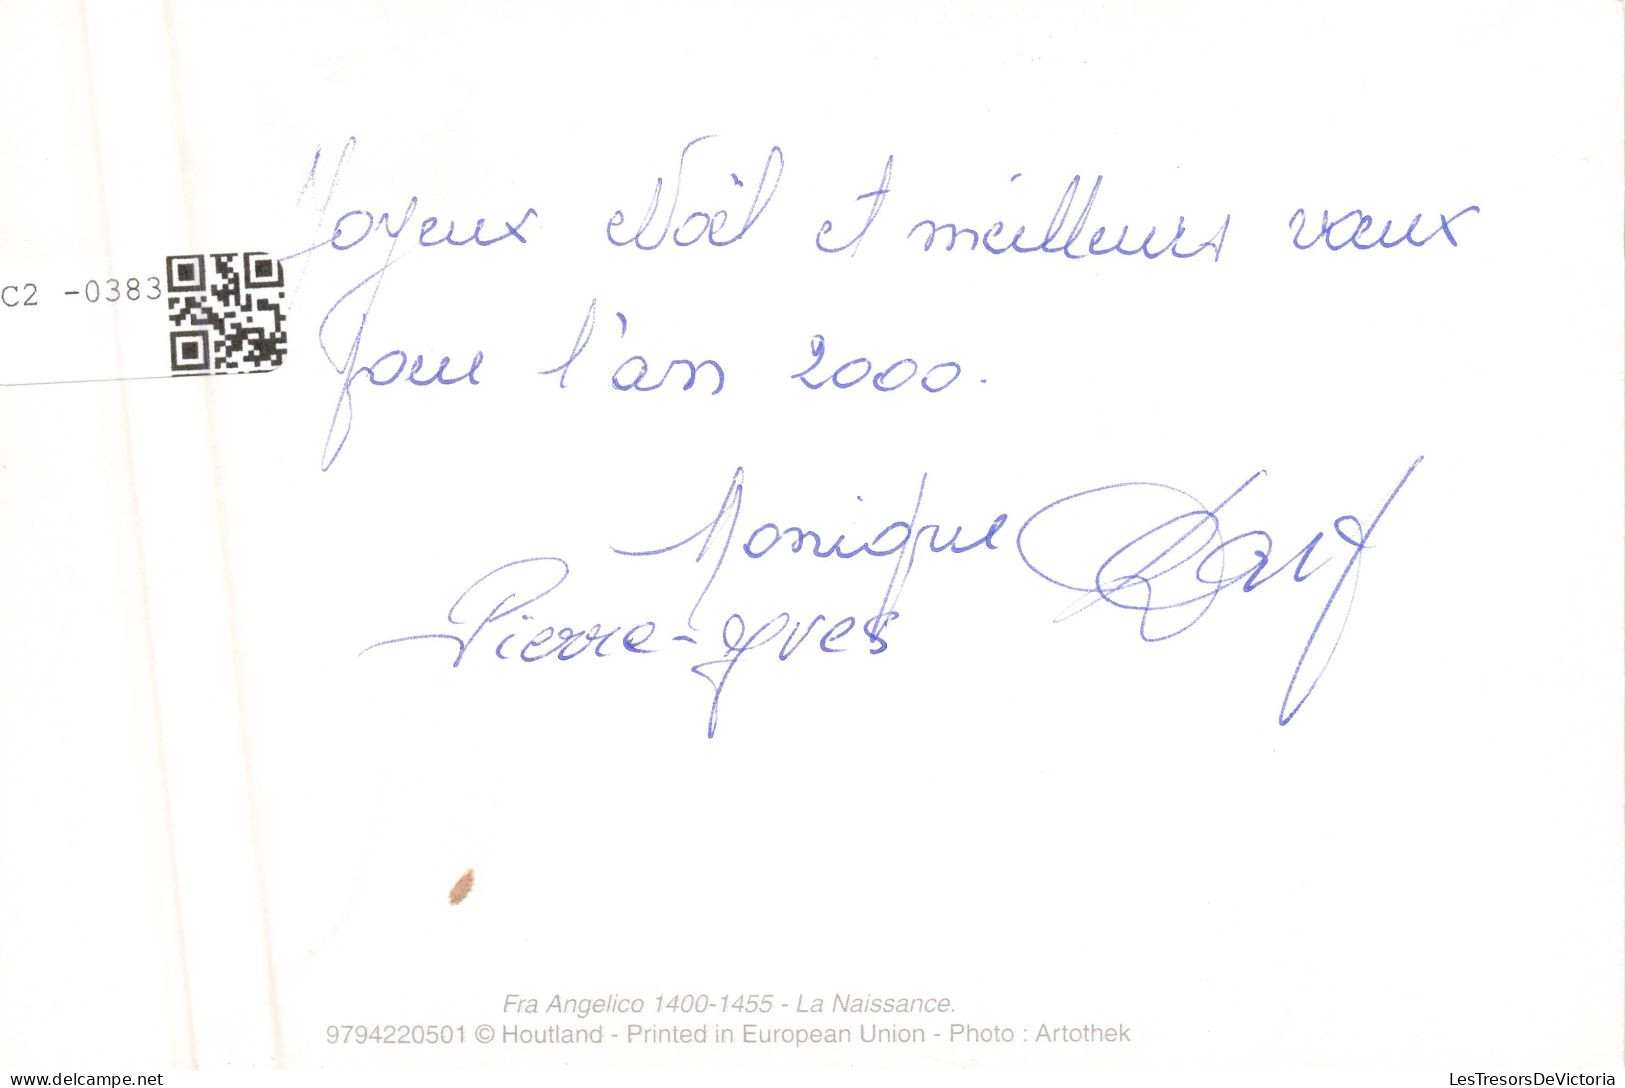 Joyeux Noël et meilleurs vœux
C2 -0383
pour l'an 2000.
Monique
Pierre-Yves
Fra Angelico 1400-1455 - La Naissance.
9794220501 © Houtland - Printed in European Union - Photo : Artothek
LesTresorsDeVictoria
www.delcampe.net